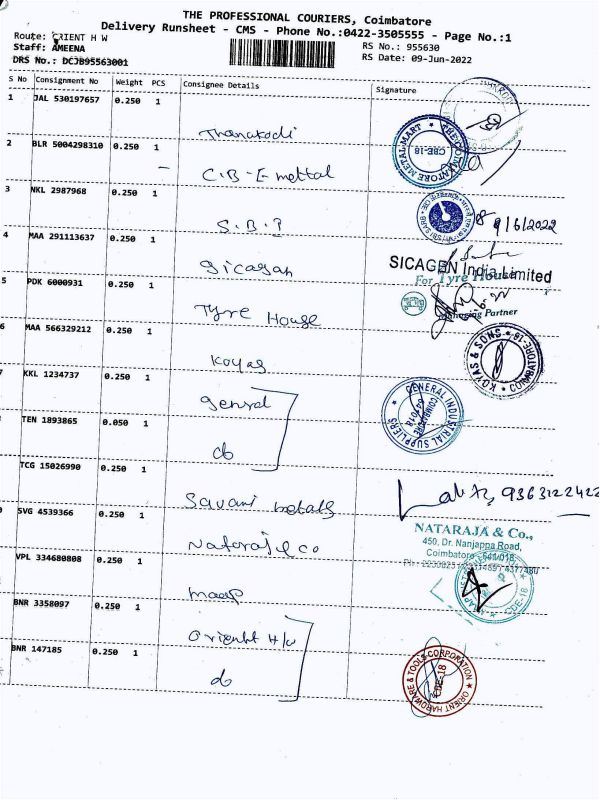 THE PROFESSIONAL COURIERS, Coimbatore
Delivery Runsheet - CMS - Phone No.:0422-3505555 - Page No.:1
Route: ORIENT H W
RS No.: 955630
Staff: AMEENA
RS Date: 09-Jun-2022
DRS No.: DCJB95563001
S No Consignment No Weight PCS Consignee Details Signature
1 JAL 530197657 0.250 1
Thanakodi
2 BLR 5004298310 0.250 1
C.B.E mettal
METAL-MART
CBE-18
3 NKL 2987968 0.250 1
S.B.I
9/6/2022
4 MAA 291113637 0.250 1
Sicagan
SICAGEN India Limited
5 PDK 6000931 0.250 1
Tyre House
For Tyre House
Managing Partner
6 MAA 566329212 0.250 1
Koyas
KOYAS & SONS COIMBATORE-18
7 KKL 1234737 0.250 1
Genral
GENERAL INDUSTRIAL SUPPLIERS
COIMBATORE
641 018
TEN 1893865 0.050 1
do
TCG 15026990 0.250 1
Savani metals
9363122422
SVG 4539366 0.250 1
Nataraj & co
NATARAJA & Co.,
450, Dr. Nanjappa Road,
Coimbatore - 641 018
VPL 334680808 0.250 1
maap
CBE-18
BNR 3358097 0.250 1
Orienht H/W
BNR 147185 0.250 1
do
ORIENT HARDWARE & TOOLS CORPORATION
CBE-18